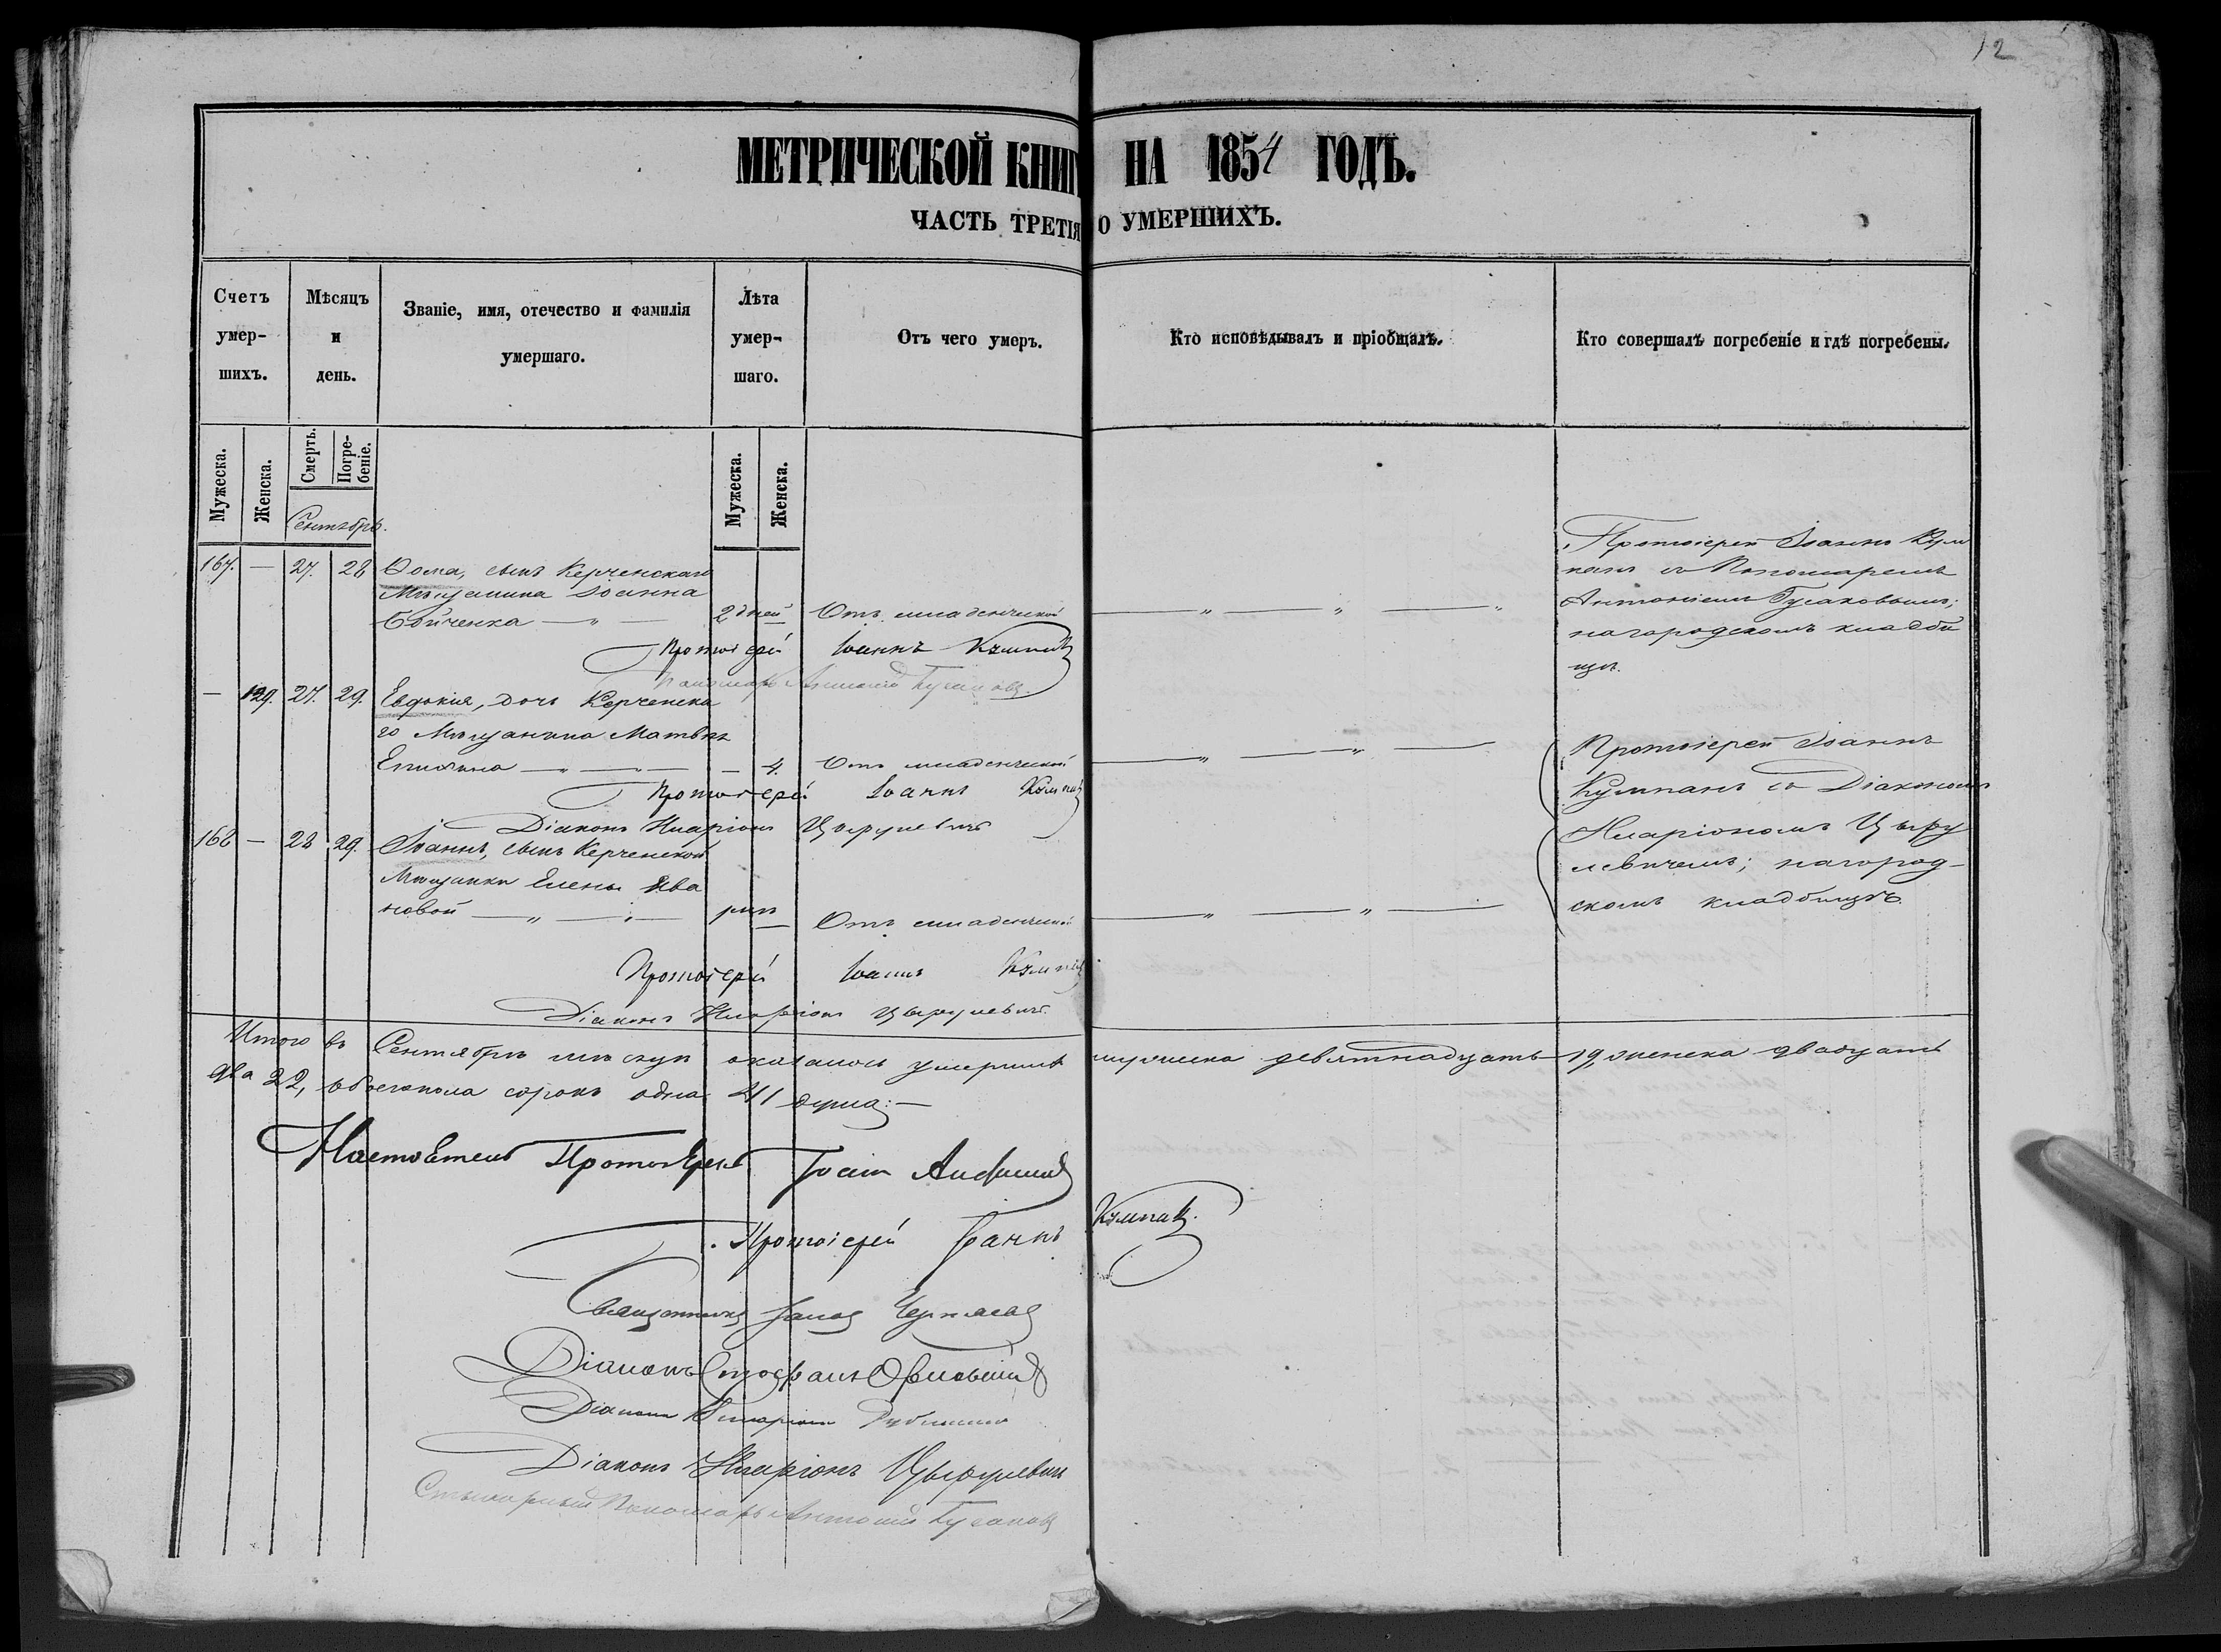 12
МЕТРИЧЕСКОЙ КНИГ НА 1854 ГОДЪ.
ЧАСТЬ ТРЕТІЯ О УМЕРШИХЪ.
Счетъ умер- шихъ.
Мѣсяцъ и день.
Званіе, имя, отечество и фамилія умершаго.
Лѣта умер- шаго.
Отъ чего умеръ.
Кто исповѣдывалъ и пріобщалъ.
Кто совершалъ погребеніе и гдѣ погребены.
Мужеска. Женска. Смерть. Погре- беніе. Мужеска. Женска.
Сентябрь.
167. — 27. 28 Ѳома, сынъ Керченскаго
Мѣщанина Іоанна
Бойченка — „ — 2 дней Отъ младенческой — „ — „ — „
Протоіерей Іоаннъ Кум
панъ съ Пономаремъ
Антоніемъ Гусаковымъ;
на городскомъ кладби
щѣ.
Протоіерей Іоаннъ Кумпанъ
Пономарь Антоній Гусаковъ.
— 129. 27. 29. Евдокія, дочь Керченска
го Мѣщанина Матвѣя
— „ — „ — — 4. Отъ младенческой — „ — „ —
Протоіерей Іоаннъ Кумпанъ
Діаконъ Иларіонъ Цырулевичъ
168 — 28 29. Іоаннъ, сынъ Керченской
Мѣщанки Елены Ива
новой — „ — „ — — Отъ младенческой — „ — „ —
Протоіерей Іоаннъ
Кумпанъ съ Діакономъ
Иларіономъ Цыру
левичемъ; на город-
скомъ кладбищѣ.
Протоіерей Іоаннъ Кумпанъ
Діаконъ Иларіонъ Цырулевичъ.
Итого въ Сентябрѣ мѣсяцѣ оказалось умершихъ мужеска девятнадцать 19, женска двадцать
два 22, обоего пола сорокъ одна 41 душа: —
Настоятель Протоіерей Іоаннъ
Протоіерей Іоаннъ Кумпанъ.
Священникъ
Діаконъ Стефанъ
Діаконъ Иларіонъ
Діаконъ Иларіонъ Цырулевичъ
Пономарь Антоній Гусаковъ